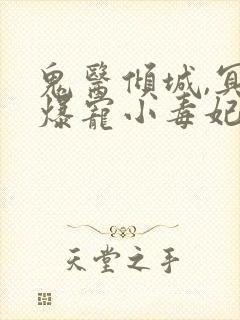 鬼醫傾城,冥
爆寵小毒妃
天堂之手